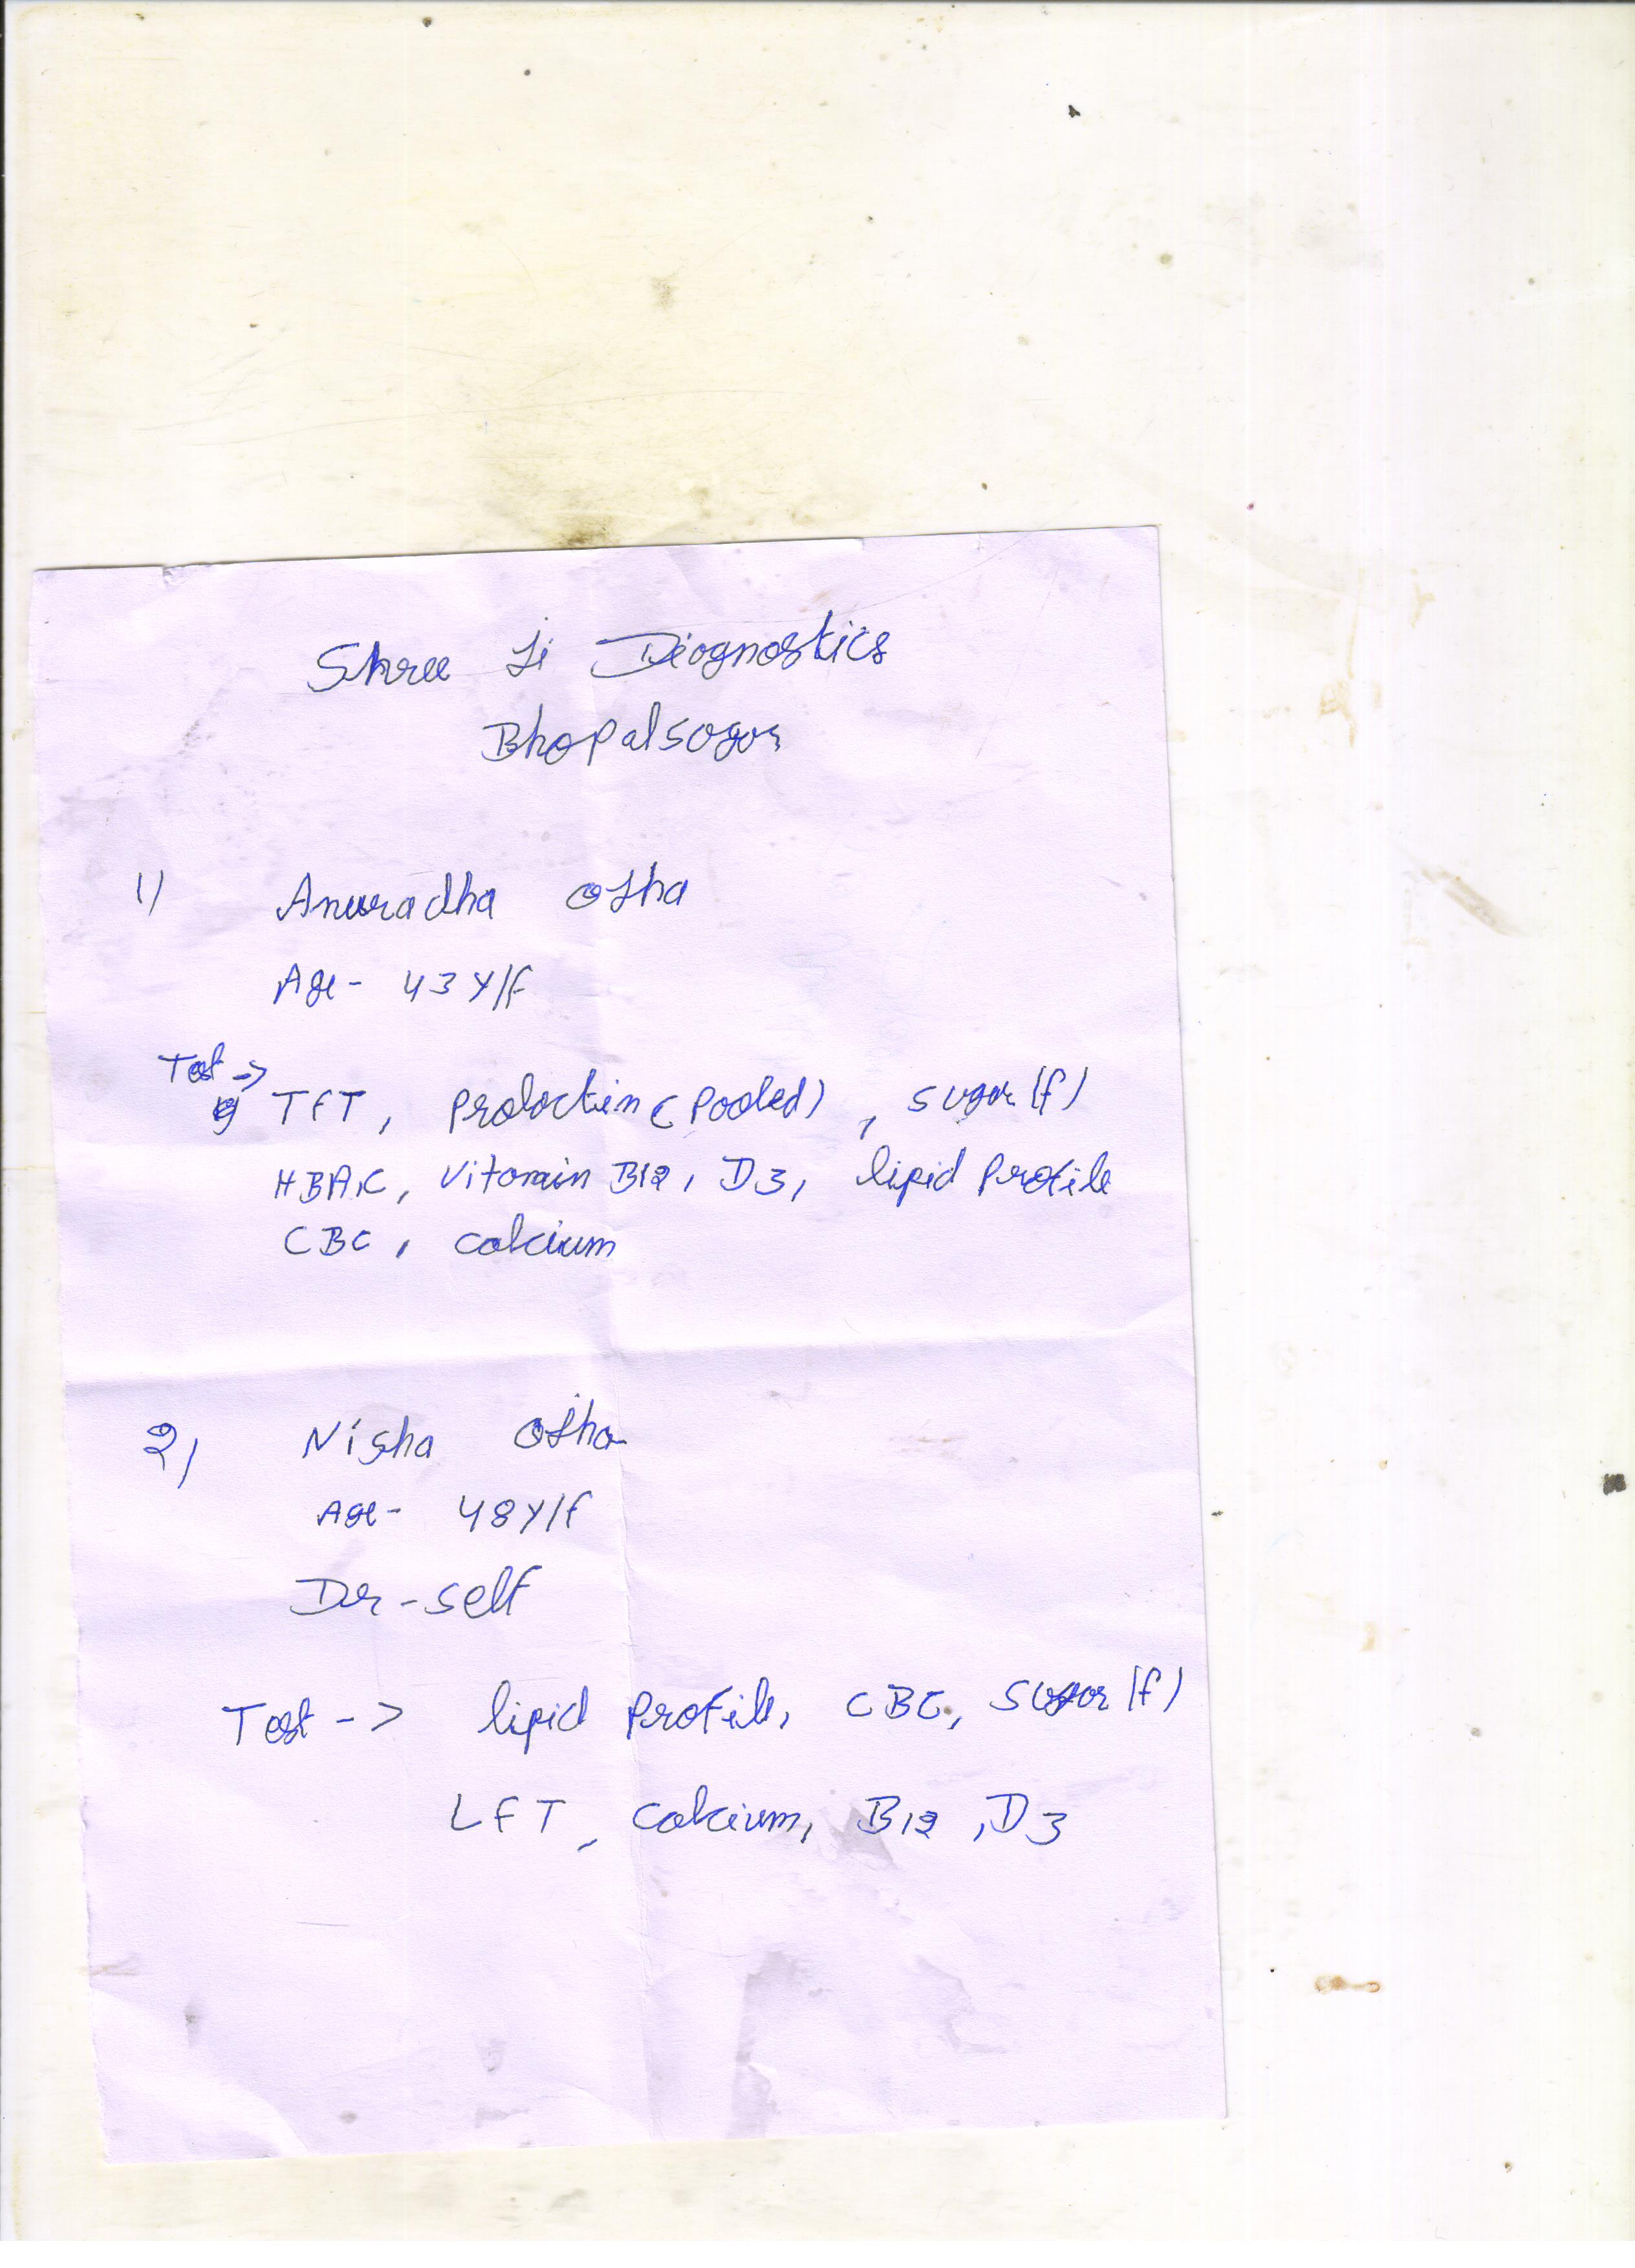 Shree Ji Diagnostics
Bhopalsagar
1) Anuradha Ojha
Age - 43 Y/F
Test ->
TFT, Prolactin (Pooled), sugar (f)
HBA1C, Vitamin B12, D3, lipid Profile
CBC, calcium
2) Nisha Ojha
Age - 48 Y/F
Dr - self
Test -> lipid Profile, CBC, Sugar (f)
LFT, calcium, B12, D3